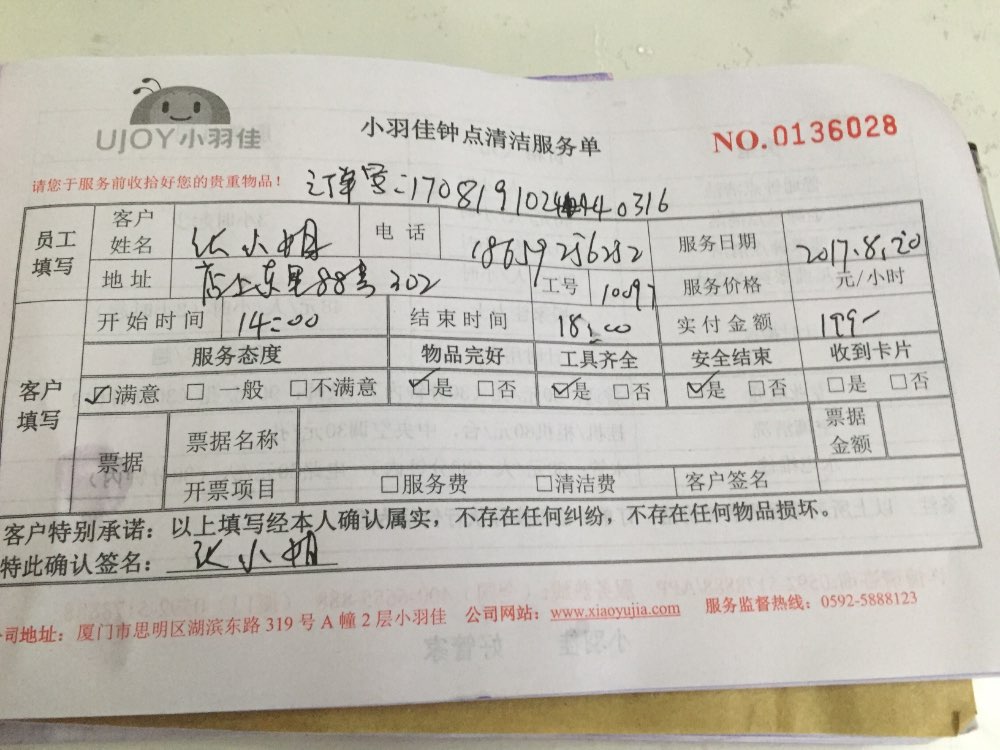 UJOY小羽佳
小羽佳钟点清洁服务单
NO.0136028
请您于服务前收拾好您的贵重物品！
订单号：170819102 40316
员工填写 客户姓名 张小姐 电话 18659256282 服务日期 2017.8.20
地址 店上东里88号302 工号 10097 服务价格 元/小时
客户填写 开始时间 14:00 结束时间 18:00 实付金额 199-
服务态度 物品完好 工具齐全 安全结束 收到卡片
☑满意 □一般 □不满意 ☑是 □否 ☑是 □否 ☑是 □否 □是 □否
票据 票据名称 票据金额
开票项目 □服务费 □清洁费 客户签名
客户特别承诺：以上填写经本人确认属实，不存在任何纠纷，不存在任何物品损坏。
特此确认签名：张小姐
司地址：厦门市思明区湖滨东路319号A幢2层小羽佳 公司网站：www.xiaoyujia.com 服务监督热线：0592-5888123